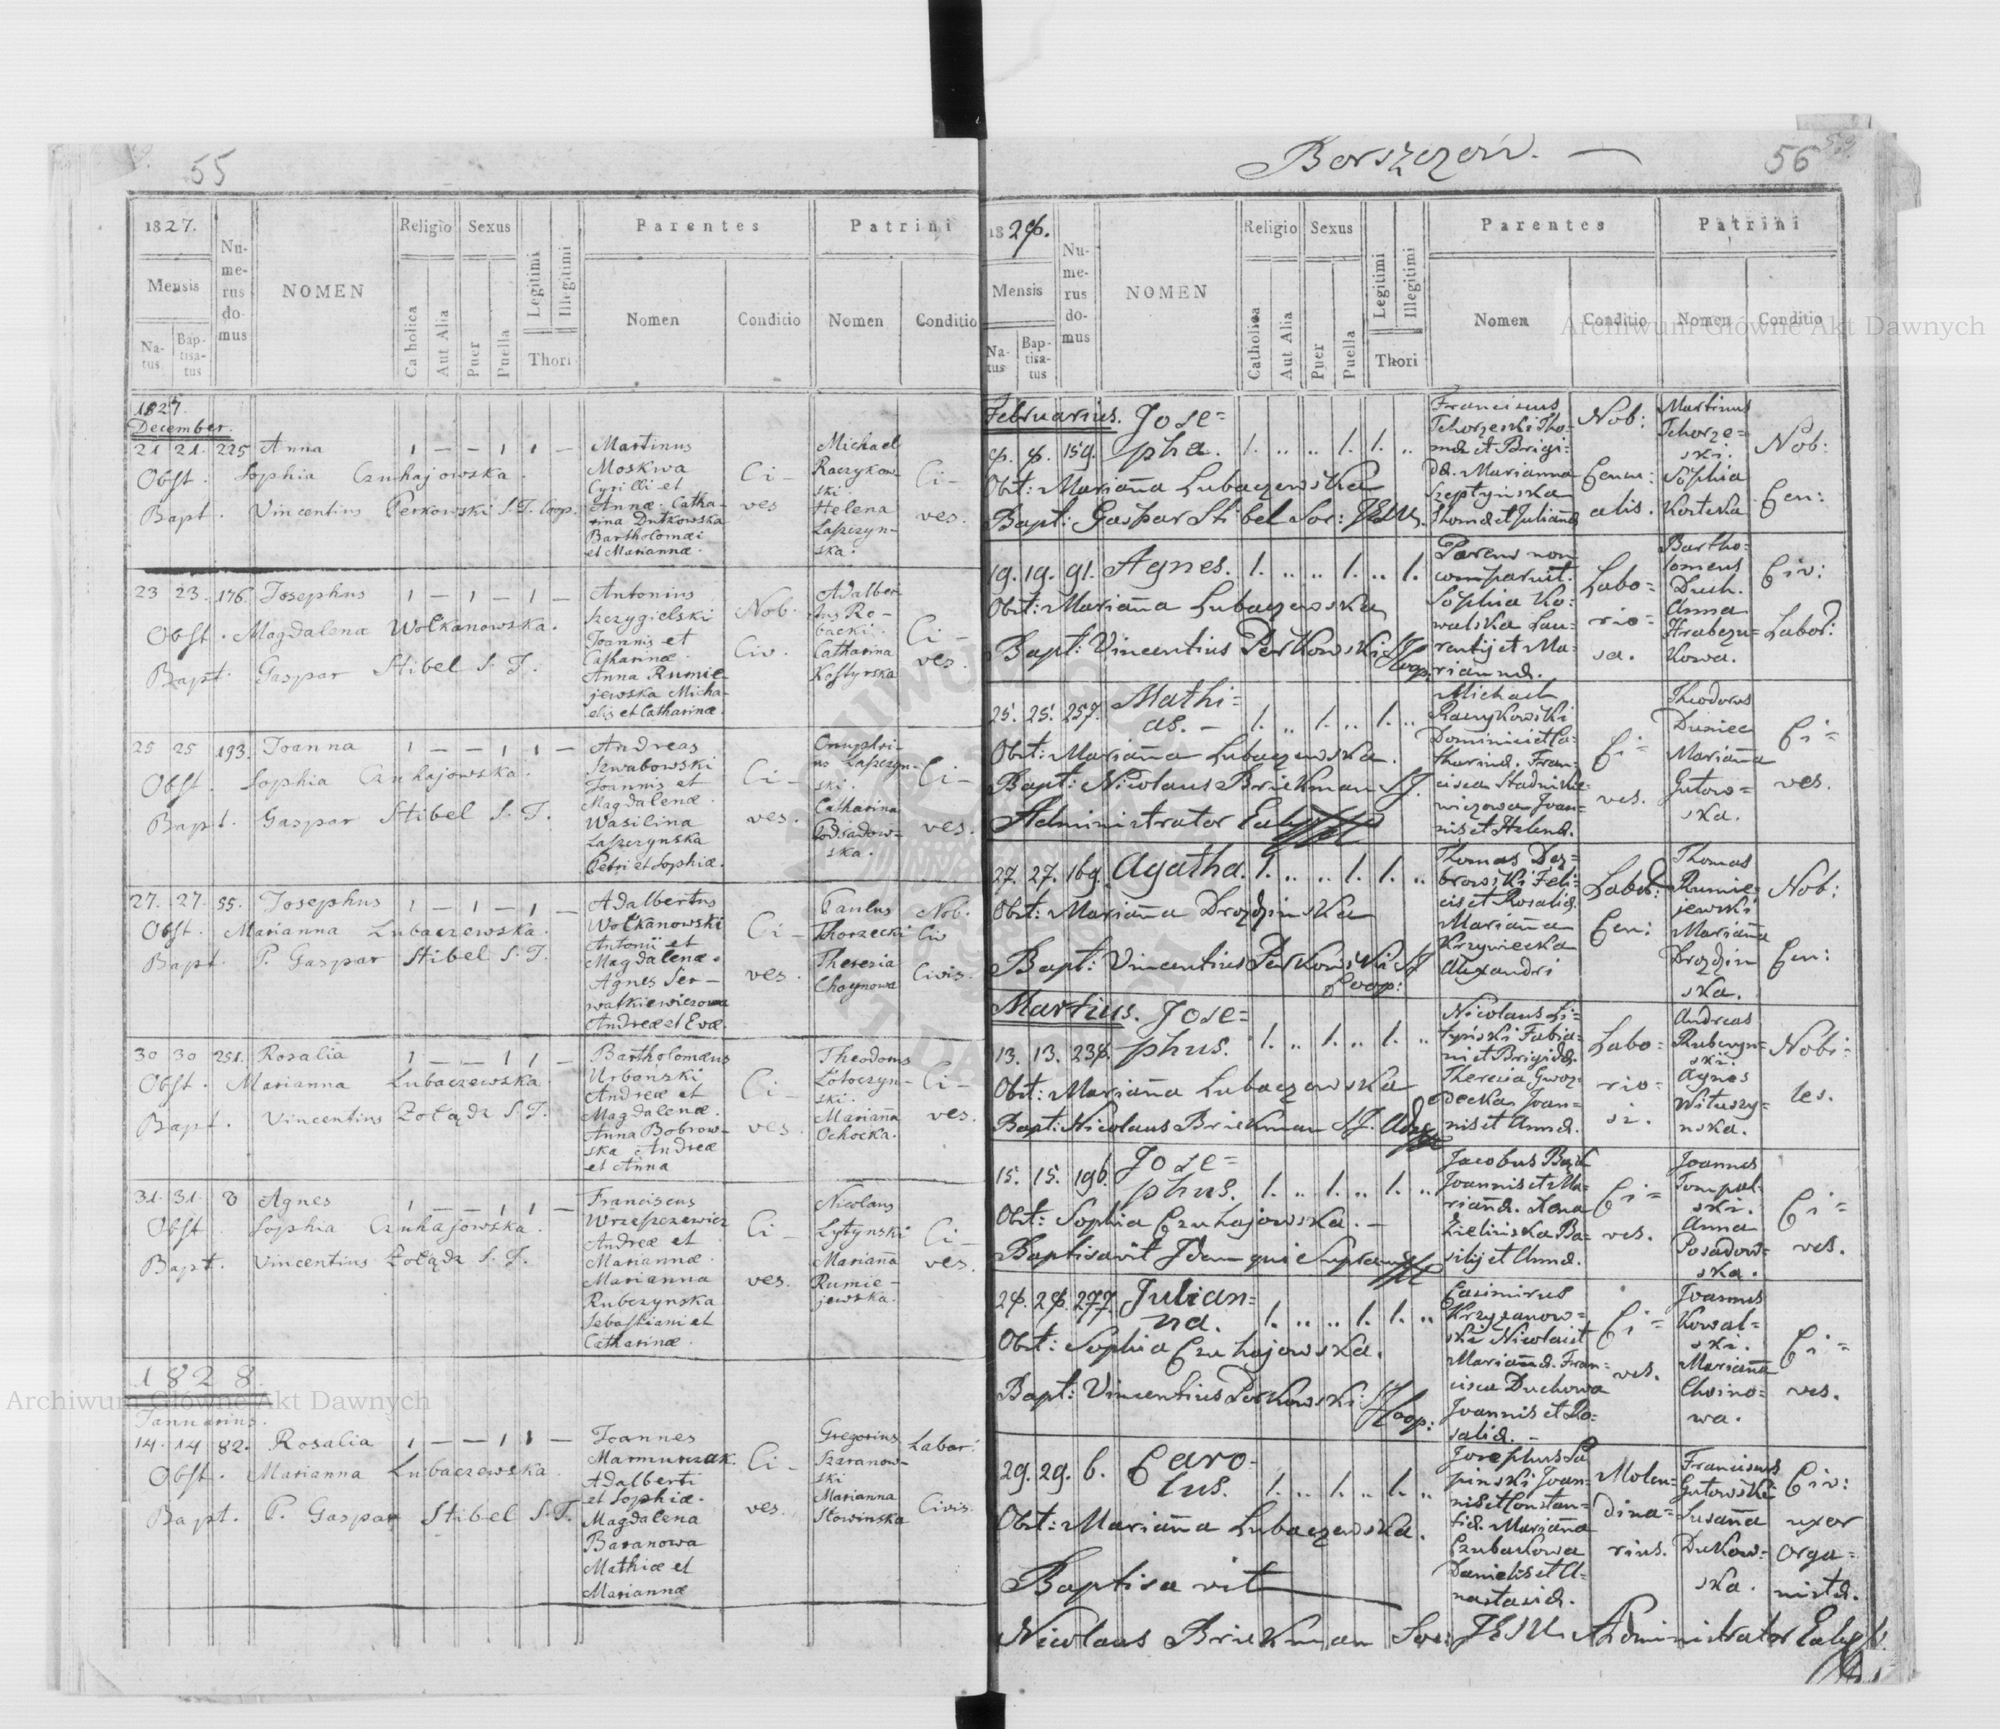 55
1827.
Mensis
Natus
Baptisatus
Numerus domus
NOMEN
Religio
Catholica
Aut Alia
Sexus
Puer
Puella
Legitimi
Illegitimi
Thori
Parentes
Nomen
Conditio
Patrini
Nomen
Conditio
1827.
December.
21 21. 225 Anna 1 — — 1 1 —
Obst. Sophia Czuhajowska.
Bapt. Vincentius Perkowski S.J. Coop.
Martinus
Moskwa
Cyrilli et
Annæ. Catha-
rina Dutkowska
Bartholomæi
et Mariannæ.
Ci-
ves
Michael
Raczykow-
ski.
Helena
Ci-
ves.
23 23. 176. Josephus 1 — 1 — 1 —
Obst. Magdalena Wołkanowska.
Bapt. Gaspar Stibel S. J.
Antonius
Szczygielski
Joannis et
Catharinæ
Anna Rumie-
jewska Micha-
elis et Catharinæ.
Nob.
Civ.
Adalber-
tus Ro-
backi.
Catharina
Kostyrska
Ci-
ves.
25 25 193. Joanna 1 — — 1 1 —
Obst. Sophia Czuhajowska.
Bapt. Gaspar Stibel S. J.
Andreas
Szwabowski
Joannis et
Magdalenæ.
Wasilina
Petri et Sophiæ.
Ci-
ves.
Catharina
Ci-
ves.
27. 27. 55. Josephus 1 — 1 — 1 —
Obst. Marianna Lubaczewska.
Bapt. P. Gaspar Stibel S. J.
Adalbertus
Wołkanowski
Antonii et
Magdalenæ.
Agnes Ser-
watkiewiczowa
Andreæ et Evæ.
Ci-
ves.
Paulus
Thorzecki
Theresia
Choynowa
Nob.
Civ
Civis.
30 30 251. Rosalia 1 — — 1 1 —
Obst. Marianna Lubaczewska.
Bapt. Vincentius Żołądz S. J.
Bartholomæus
Urbański
Andreæ et
Magdalenæ.
Anna Bobrow-
ska Andreæ
et Anna
Ci-
ves.
Theodorus
Złoczyn-
ski.
Marianna
Ochocka.
Ci-
ves.
31. 31. 8 Agnes 1 — — 1 1 —
Obst. Sophia Czuhajowska.
Bapt. Vincentius Żołądz S. J.
Franciscus
Andreæ et
Mariannæ.
Marianna
Rubczynska
Sebastiani et
Catharinæ.
Ci-
ves.
Nicolaus
Lytynski
Marianna
Rumie-
jewska.
Ci-
ves.
1828.
Januarius.
14. 14 82. Rosalia 1 — — 1 1 —
Obst. Marianna Lubaczewska
Bapt. P. Gaspar Stibel S. J.
Joannes
Marmurzak
Adalberti
et Sophiæ.
Magdalena
Baranowa
Mathiæ et
Mariannæ
Ci-
ves.
Gregorius
Szaranow-
ski
Marianna
Słowinska
Labor:
Civis.
Borszczów. —
56
1828.
Mensis
Natus
Baptisatus
Numerus domus
NOMEN
Religio
Catholica
Aut Alia
Sexus
Puer
Puella
Legitimi
Illegitimi
Thori
Parentes
Nomen
Conditio
Patrini
Nomen
Conditio
Februarius.
8. 8. 159. Jose=
pha. 1. .. .. 1. 1. ..
Obst: Marianna Lubaczewska
Bapt: Gaspar Stibel Soc: JESU.
Franciscus
Tchorzeski Tho-
mæ et Brigi:
dæ. Marianna
Szeptyńska
Thomæ et Julianæ
Nob:
alis.
Martinus
Tchorze=
ski.
Sophia
Kostska
Nob:
Gen:
19. 19. 91. Agnes. 1. .. .. 1. .. 1.
Obst: Marianna Lubaczewska
Bapt: Vincentius Perkowski SJ Coop.
Parens non
comparuit.
Sophia Ko=
walska Lau=
rentij et Ma=
riannæ.
Labo=
rio=
sa.
Bartho=
lomeus
Duch.
Anna
Hrabczu=
kowa.
Civ:
Labor:
25. 25. 257. Mathi=
as. - 1. .. 1. .. 1. ..
Obst: Marianna Lubaczewska.
Bapt: Nicolaus Briekman SJ.
Administrator
Michael
Raczykowski
Dominici et Ca=
tharinæ. Fran=
cisca Stadnikie=
wiczowa Joan=
nis et Helenæ.
Ci=
ves.
Theodorus
Duniec
Marianna
Gutow=
ska.
Ci=
ves.
27. 27. 169. Agatha. 1. .. .. 1. 1. ..
Obst: Marianna Drozdzinska
Bapt: Vincentius Perkowski SJ
Coop:
Thomas Dąz=
browski Feli=
cis et Rosaliæ.
Marianna
Krzywiecka
Alexandri
Labor:
Gen:
Thomas
Rumie=
jewski
Marianna
Drozdzin
ska.
Nob:
Gen:
Martius.
13. 13. 238. Jose=
phus. 1. .. 1. .. 1. ..
Obst: Marianna Lubaczewska
Bapt: Nicolaus Briekman SJ.
Nicolaus Li=
tyński Fabia=
ni et Brigidæ.
Theresia Gwoz=
decka Joan=
nis et Annæ.
Labo=
rio=
si.
Andreas
Rubczyn=
ski.
Agnes
Wituszy=
nska.
Nobi=
les.
15. 15. 196. Jose=
phus. 1. .. 1. .. 1. ..
Obst: Sophia Czuhajowska. —
Baptisavit Idem qui Supra
Joannis et Ma=
riannæ. Anna
Zielinska Ba=
silij et Annæ.
Ci=
ves.
Joannes
Anna
Posadow=
ska.
Ci=
ves.
28. 28. 277. Julian=
na. 1. .. .. 1. 1. ..
Obst: Sophia Czuhajowska.
Bapt: Vincentius Perkowski SJ Coop:
Casimirus
Krzyzanow=
ski Nicolai et
Mariannæ. Fran=
cisca Duchowa
Joannis et Ro=
saliæ. —
Ci=
ves.
Joannes
Kowal=
ski.
Marianna
Choino=
wa.
Ci=
ves.
29. 29. 6. Caro=
lus. 1. .. 1. .. 1. ..
Obst: Marianna Lubaczewska.
Baptisavit
Josephus Ła
pinski Joan=
nis et Constan=
tiæ. Marianna
Czubakowa
Danielis et A=
nastasiæ.
Molen=
dina=
rius.
Franciscus
Gutowski
Susanna
Dukow=
ska.
Civ:
uxor
orga=
nistæ.
Nicolaus Briekman Soc: JESU. Administrator
Archiwum Główne Akt Dawnych
Archiwum Główne Akt Dawnych